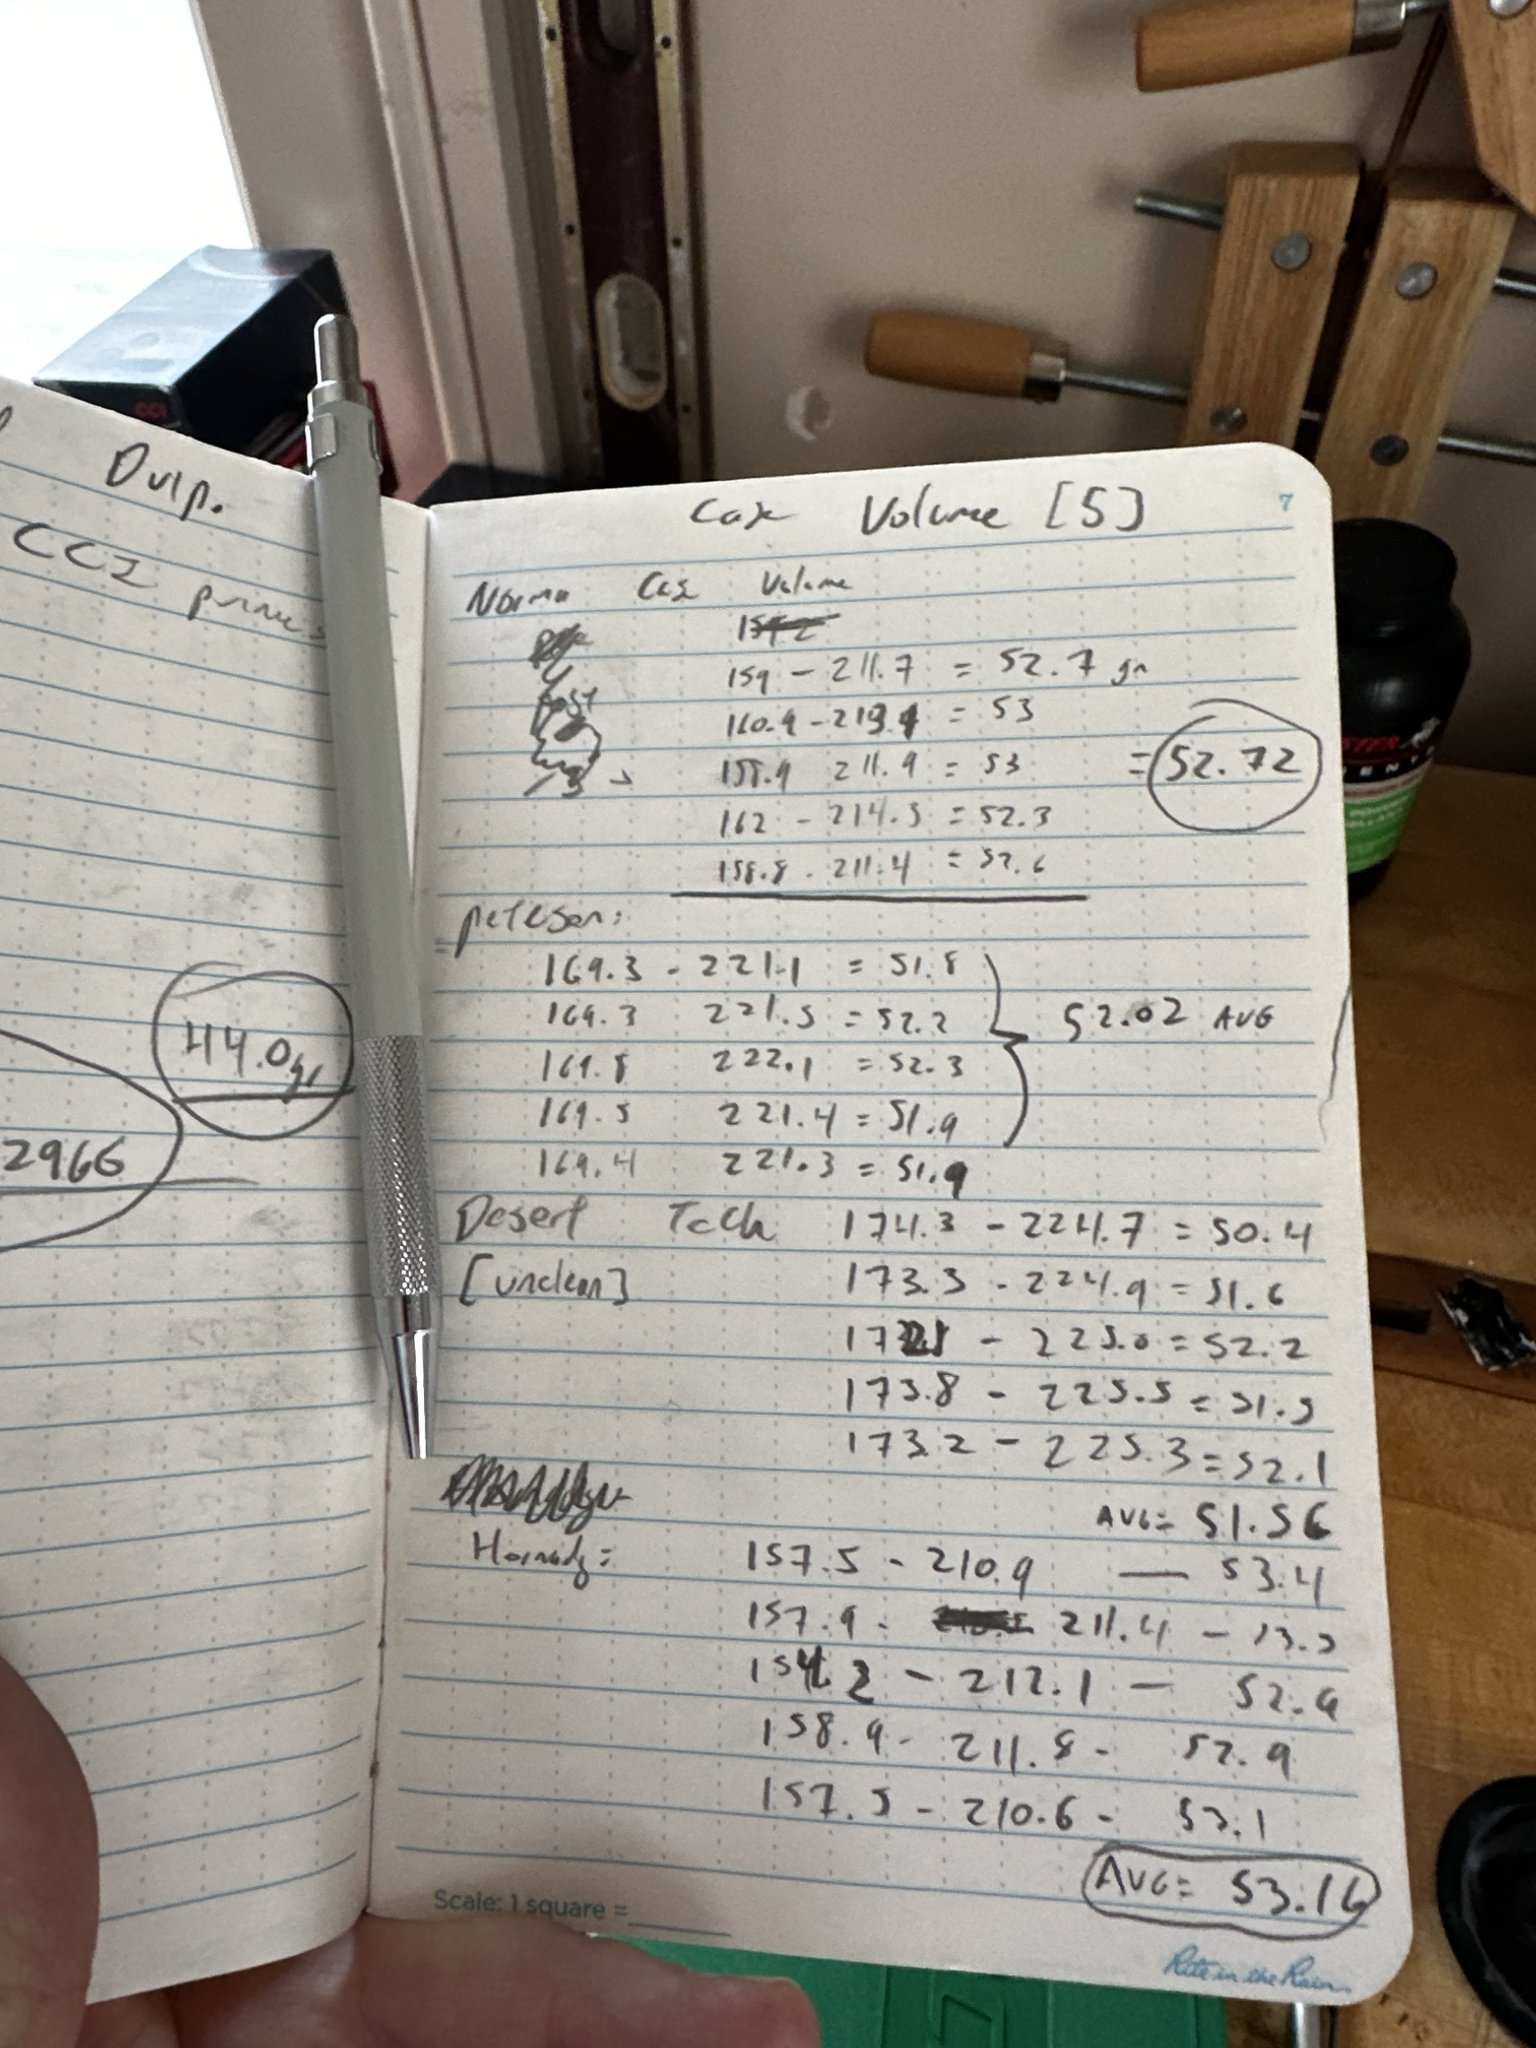 Dulp.
CCI primers
44.0gr
2966
CCI
Case Volume [5]
7
Norma Case Volume
159 - 211.7 = 52.7 gr
160.9 - 213.9 = 53
158.9 211.9 = 53
= 52.72
162 - 214.3 = 52.3
158.8 - 211.4 = 52.6
peterson:
169.3 - 221.1 = 51.8
169.3 221.5 = 52.2
52.02 AVG
169.8 222.1 = 52.3
169.5 221.4 = 51.9
169.4 221.3 = 51.9
Desert Tech 174.3 - 224.7 = 50.4
[unclean] 173.3 - 224.9 = 51.6
- 225.0 = 52.2
173.8 - 225.3 = 51.5
173.2 - 225.3 = 52.1
AVG = 51.56
Hornady: 157.5 - 210.9 — 53.4
157.9 - 211.4 - 53.5
- 212.1 - 52.9
158.9 - 211.8 - 52.9
157.5 - 210.6 - 53.1
AVG = 53.16
Scale: 1 square =
Rite in the Rain